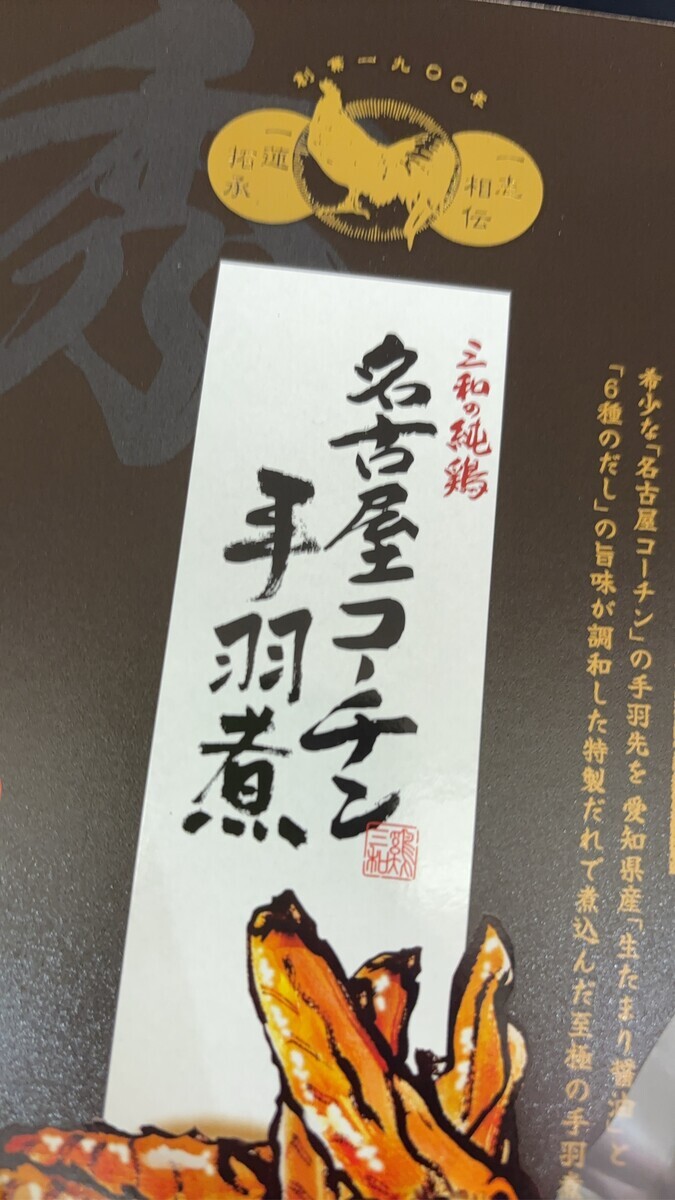 創業一九〇〇年
一志
相伝
一蓮
拓承
秀
三和の純鶏
名古屋コーチン
手羽煮
鶏三和
希少な「名古屋コーチン」の手羽先を 愛知県産「生たまり醤油」と
「6種のだし」の旨味が調和した特製だれで煮込んだ至極の手羽煮